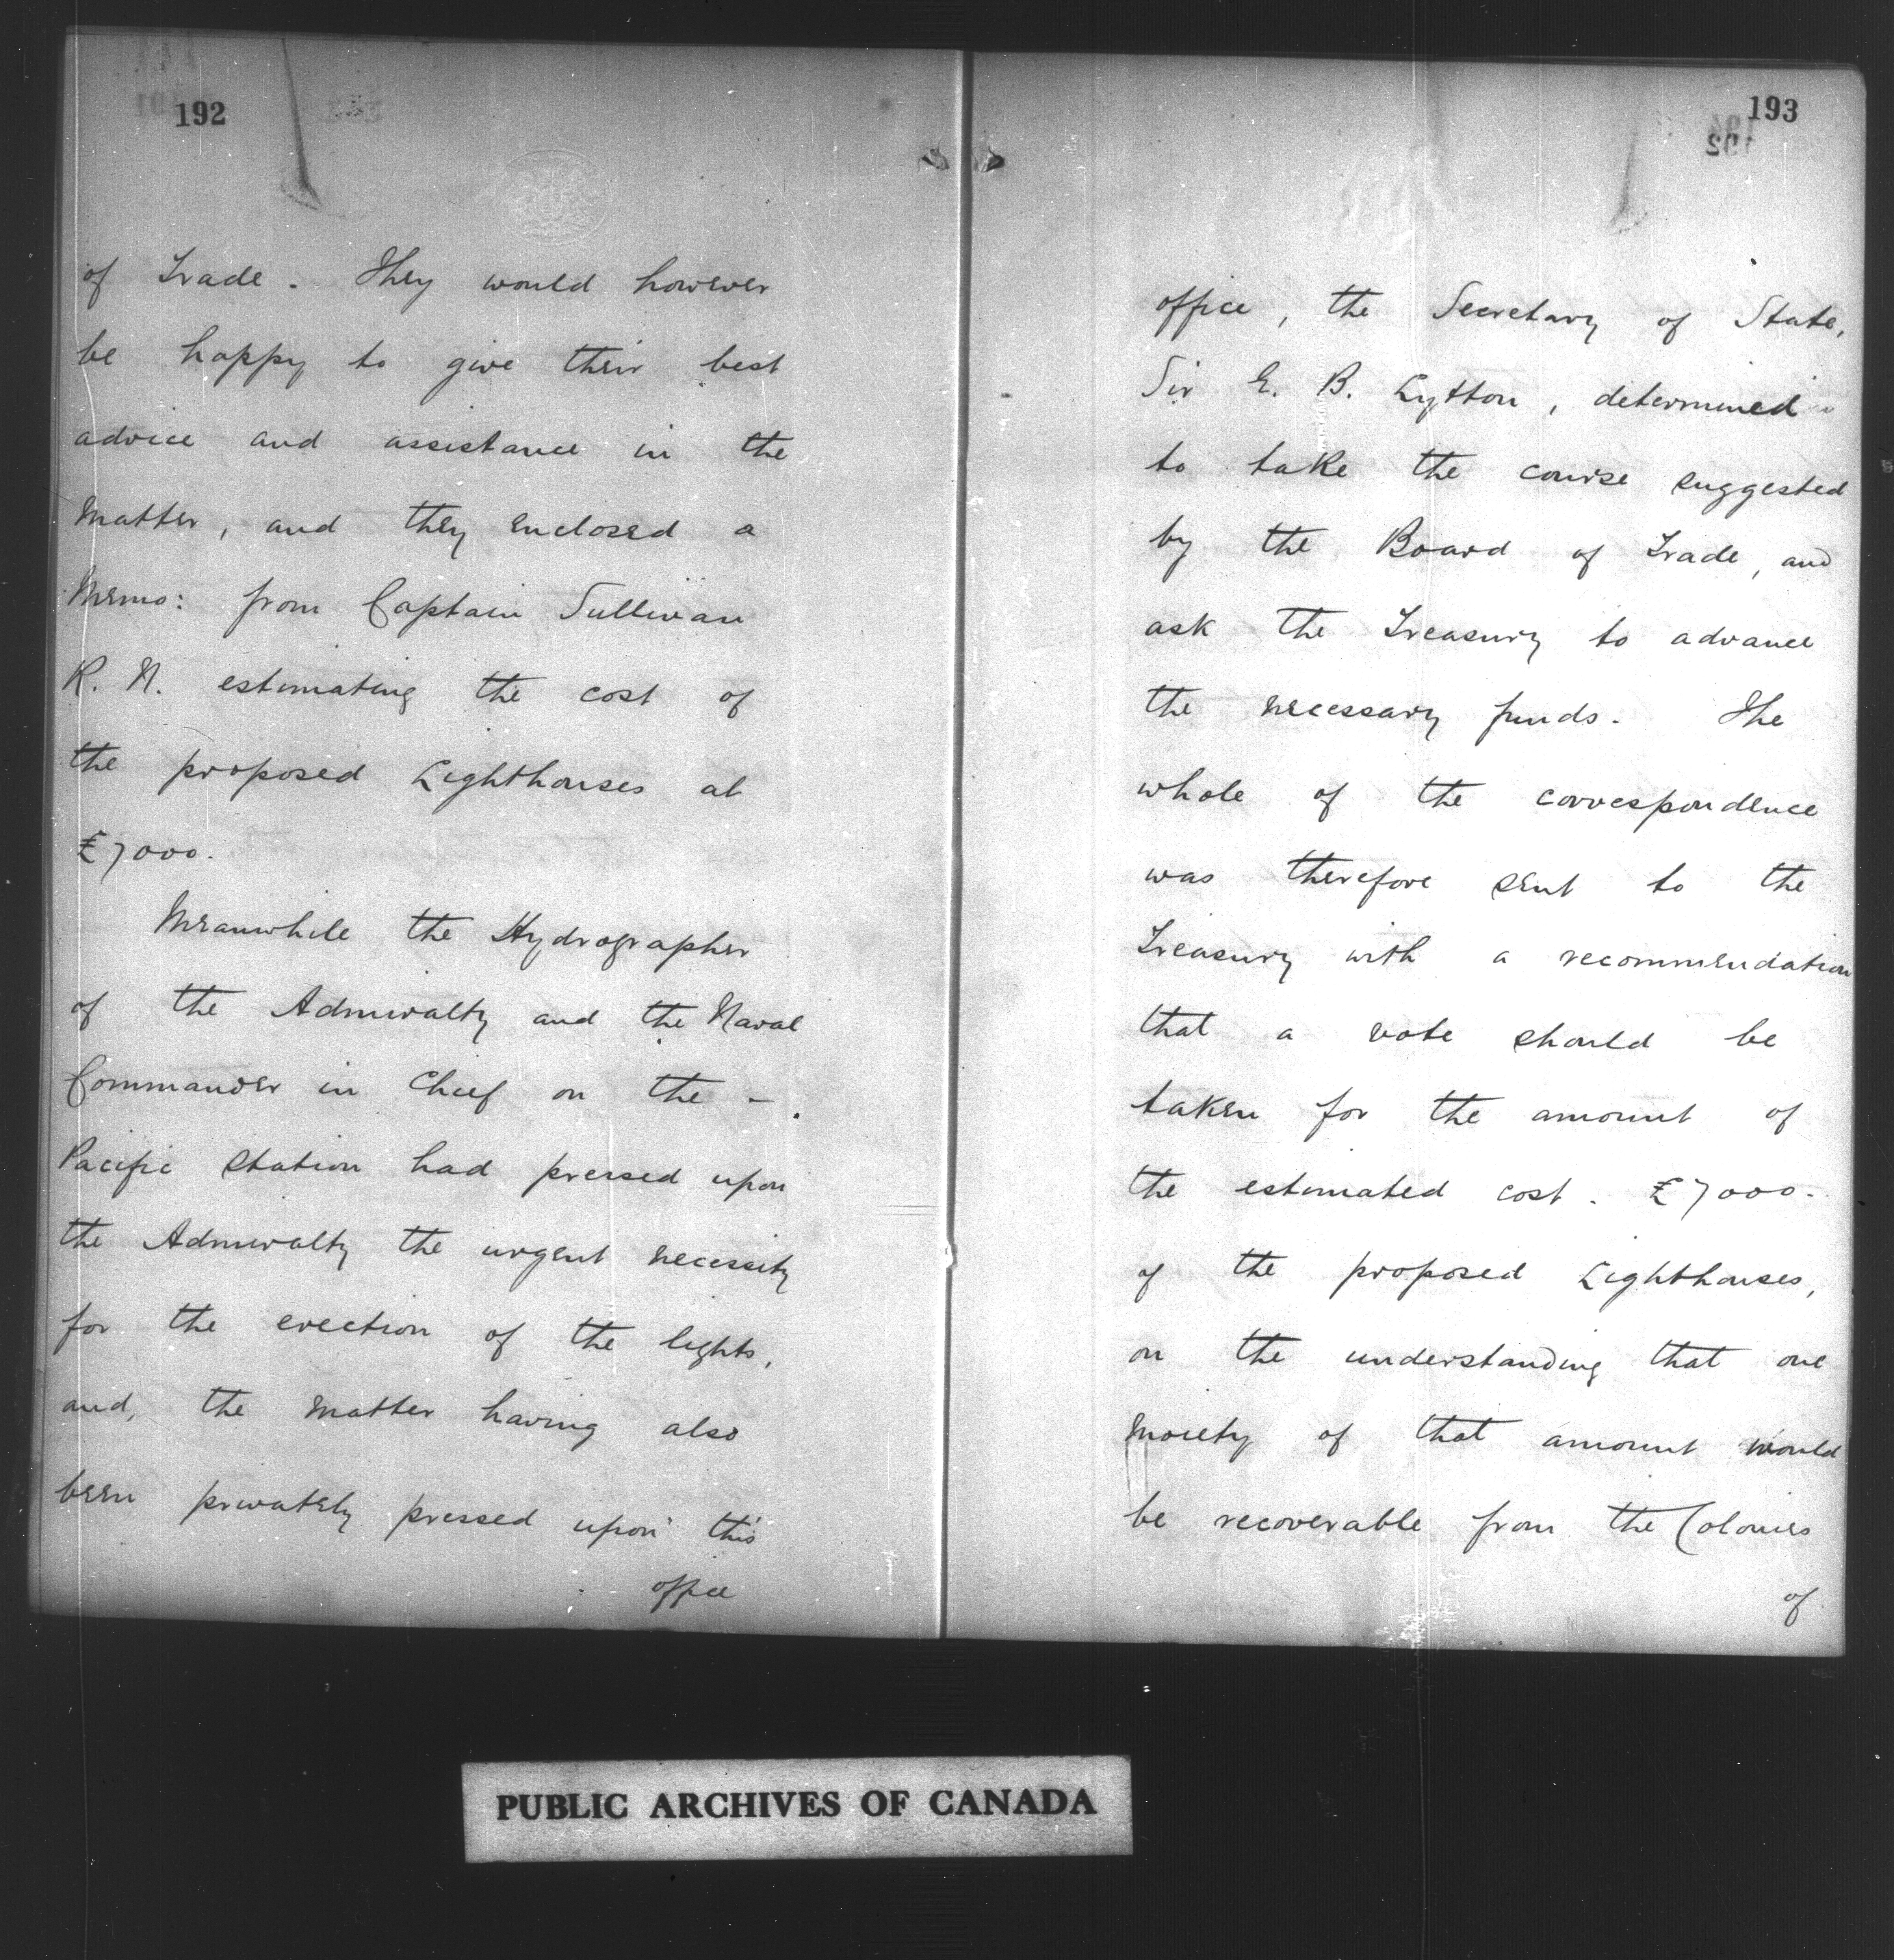 192
of Trade. They would however
be happy to give their best
advice and assistance in the
matter, and they enclosed a
Memo: from Captain Sullivan
R. N. estimating the cost of
the proposed Lighthouses at
£7000.
Meanwhile the Hydrographer
of the Admiralty and the Naval
Commander in Chief on the –
Pacific Station had pressed upon
the Admiralty the urgent necessity
for the erection of the lights,
and, the matter having also
been privately pressed upon this
office
193
192
office, the Secretary of State,
Sir E. B. Lytton, determined
to take the course suggested
by the Board of Trade, and
ask the Treasury to advance
the necessary funds. The
whole of the correspondence
was therefore sent to the
Treasury with a recommendation
that a vote should be
taken for the amount of
the estimated cost. £7000.
of the proposed Lighthouses,
on the understanding that one
moiety of that amount would
be recoverable from the Colonies
of
PUBLIC ARCHIVES OF CANADA